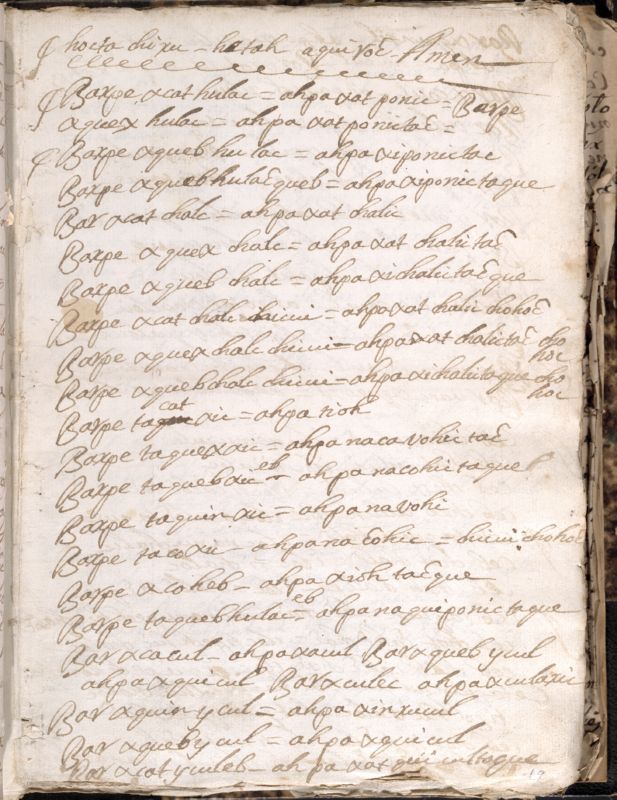 hocta chixu - hatah aquivoc Amen
Barpe xcat hulac = ahpa xat ponic = Barpe
xquex hulac = ahpa xat ponictac =
Barpe xqueb hulac = ahpa xiponictac
Barpe xquebhulac queb = ahpa xiponictaque
Bar xcat chalc = ahpa xat chalic
Barpe xquex chalc = ahpa xat chalictac
Barpe xqueb chalc = ahpa xichalictac que
Barpe xcat chalc chicui = ahpa xat chalic chohoc
Barpe xquex chalc chicui - ahpa xat chalictac cho hoc
Barpe xquebchalc chicui = ahpa xichalictaque cho hoc
Barpe tacat xic = ahpa tioh
Barpe taquexxic = ahpa nacavohic tac
Barpe taquebxic eb - ahpa nacohic taqueb
Barpe taquin xic = ahpa navohi
Barpe tacoxic ahpa na cohic = chicui chohoc
Barpe xcoheb - ahpa xioh tacque
Barpe taquebhulac eb = ahpa naquiponictaque
Bar xcacul - ahpa xacul Bar xqueb ycul
ahpa xquicul Bar xculec ahpa xculaxic
Bar xquin ycul = ahpa xinxucul
Bar xqueb ycul = ahpa xquicul
Bar xcat yculeb - ahpa xat quicultaque